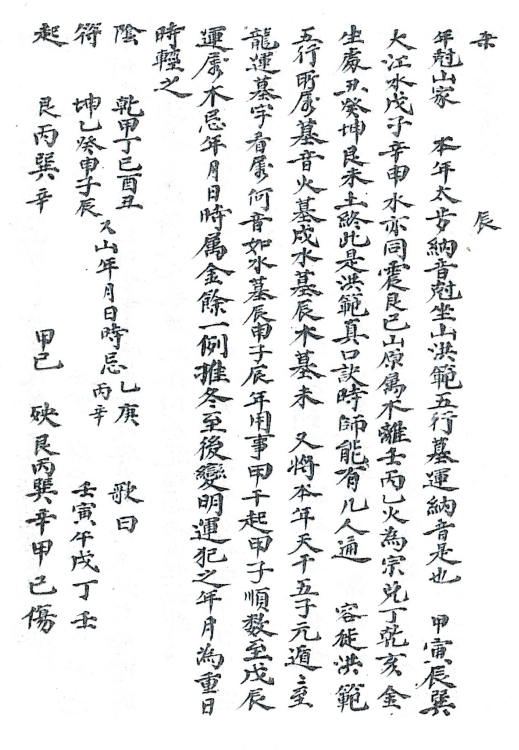 辰
年尅山家 本年太歩納音尅坐山洪範五行墓運納音是也 甲寅辰巽
大江水戊子辛申水亦同震艮巳山原属木離壬丙乙火為宗兌丁乾亥金
坐處丑癸坤艮未土終此是洪範真口訣時師能有几人通 容徙洪範
五行所属墓音火墓戌水墓辰木墓未 又將本年天干五子元遁〻至
龍運墓字看属何音如水墓辰申子辰年用事甲干起甲子順数至戊辰
運属木忌年月日時属金餘一例推冬至後變明運犯之年月為重日
時輕之
陰 乾甲丁巳酉丑 乙庚 歌曰
符 坤乙癸申子辰 又山年月日時忌 丙辛 壬寅午戌丁壬
起 艮丙巽辛 甲己 殃艮丙巽辛甲己傷